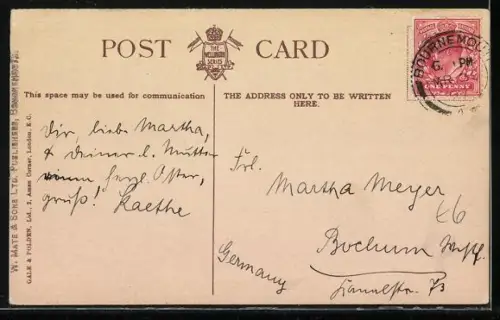 POST CARD
THE WELLINGTON SERIES
This space may be used for communication
THE ADDRESS ONLY TO BE WRITTEN
HERE.
Dir, liebe Martha,
& deiner l. Mutter
einen herzl. Oster,
gruß! Kaethe
Frl.
Martha Meyer
Bochum Westf.
73
Germany
W. MATE & SONS LTD. PUBLISHERS, BOURNEMOUTH.
GALE & POLDEN, Ltd., 2, Amen Corner, London, E.C.
BOURNEMOUTH
ONE PENNY